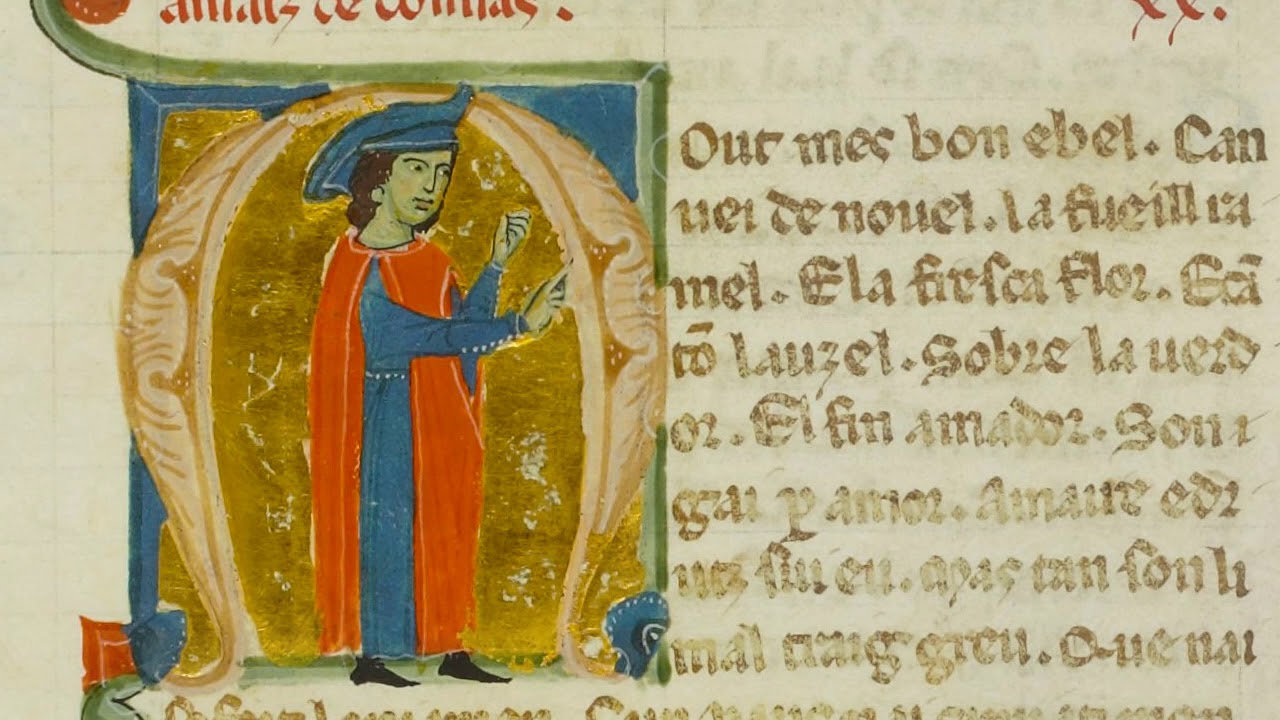 arnautz de comias. XX.
Out mes bon ebel. Can
uei de nouel. la fueill ra
mel. E la fresca flor. E cā
tō lauzel. Sobre la uerd
or. El fin amador. Son i
gai ꝑ amor. Amaire edr
utz siu eu. Mas tan son li
mal traig greu. Que nai